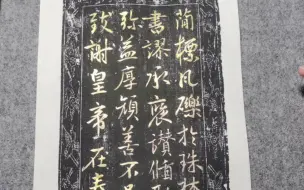 簡標瓦礫於珠林
書謬承褒讚循躬
弥益厚顏善不足
致謝皇帝在春